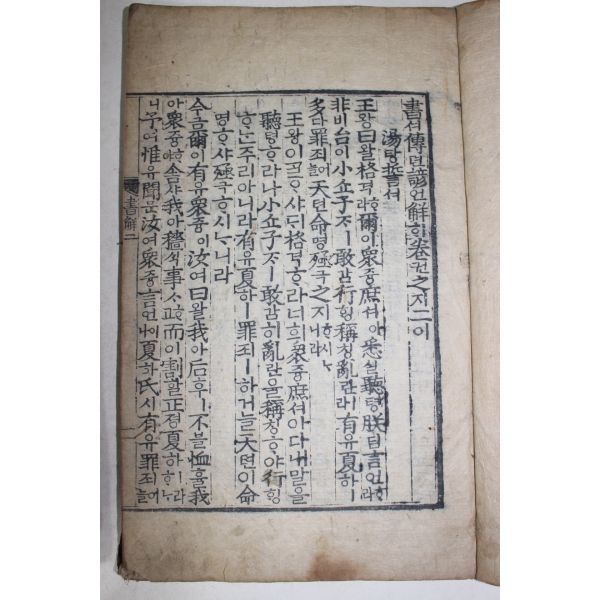 書셔傳뎐諺언解ᄒᆡ卷권之지二이
湯탕誓셔
王왕曰왈格격ᄒᆞ라爾이衆즁庶셔아悉실聽텽朕딤言언ᄒᆞ라
非비台이小쇼子ᄌᆞㅣ敢감行ᄒᆡᆼ稱칭亂란이라有유夏하ㅣ
多다罪죄어늘天텬命명殛극之지ᄒᆞ시ᄂᆞ니라
王왕이ᄀᆞᆯᄋᆞ샤ᄃᆡ格격ᄒᆞ라너희衆즁庶셔아다내말을
聽텽ᄒᆞ라나小쇼子ᄌᆞㅣ敢감히亂란을稱칭ᄒᆞ야行ᄒᆡᆼ
ᄒᆞᄂᆞᆫ주리아니라有유夏하ㅣ罪죄ㅣ하거늘天텬이命
명ᄒᆞ샤殛극ᄒᆞ시ᄂᆞ니라
今금爾이有유衆즁이汝여曰왈我아后후ㅣ不블恤휼我
아衆즁ᄒᆞ야舍샤我아穡ᄉᆡᆨ事ᄉᆞ而이割할正졍夏하ㅣ라ᄒᆞᄂᆞ
니予여惟유聞문汝여衆즁言언이나夏하氏시有유罪죄어늘
書解二